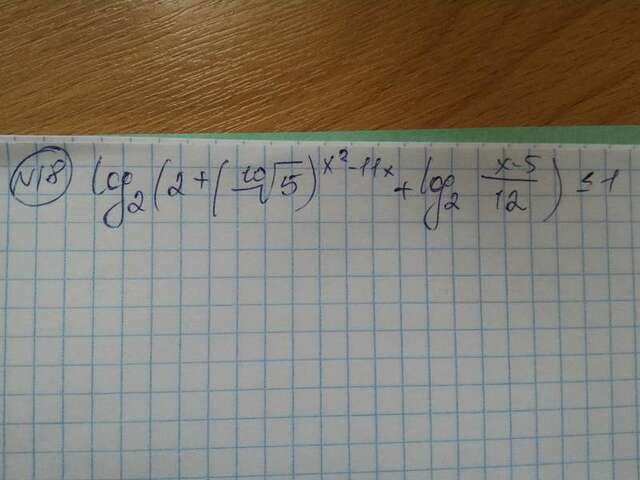 N18 log₂(2+(¹⁰√5)^(x²-11x) + log₂ (x-5)/12) ≤ 1